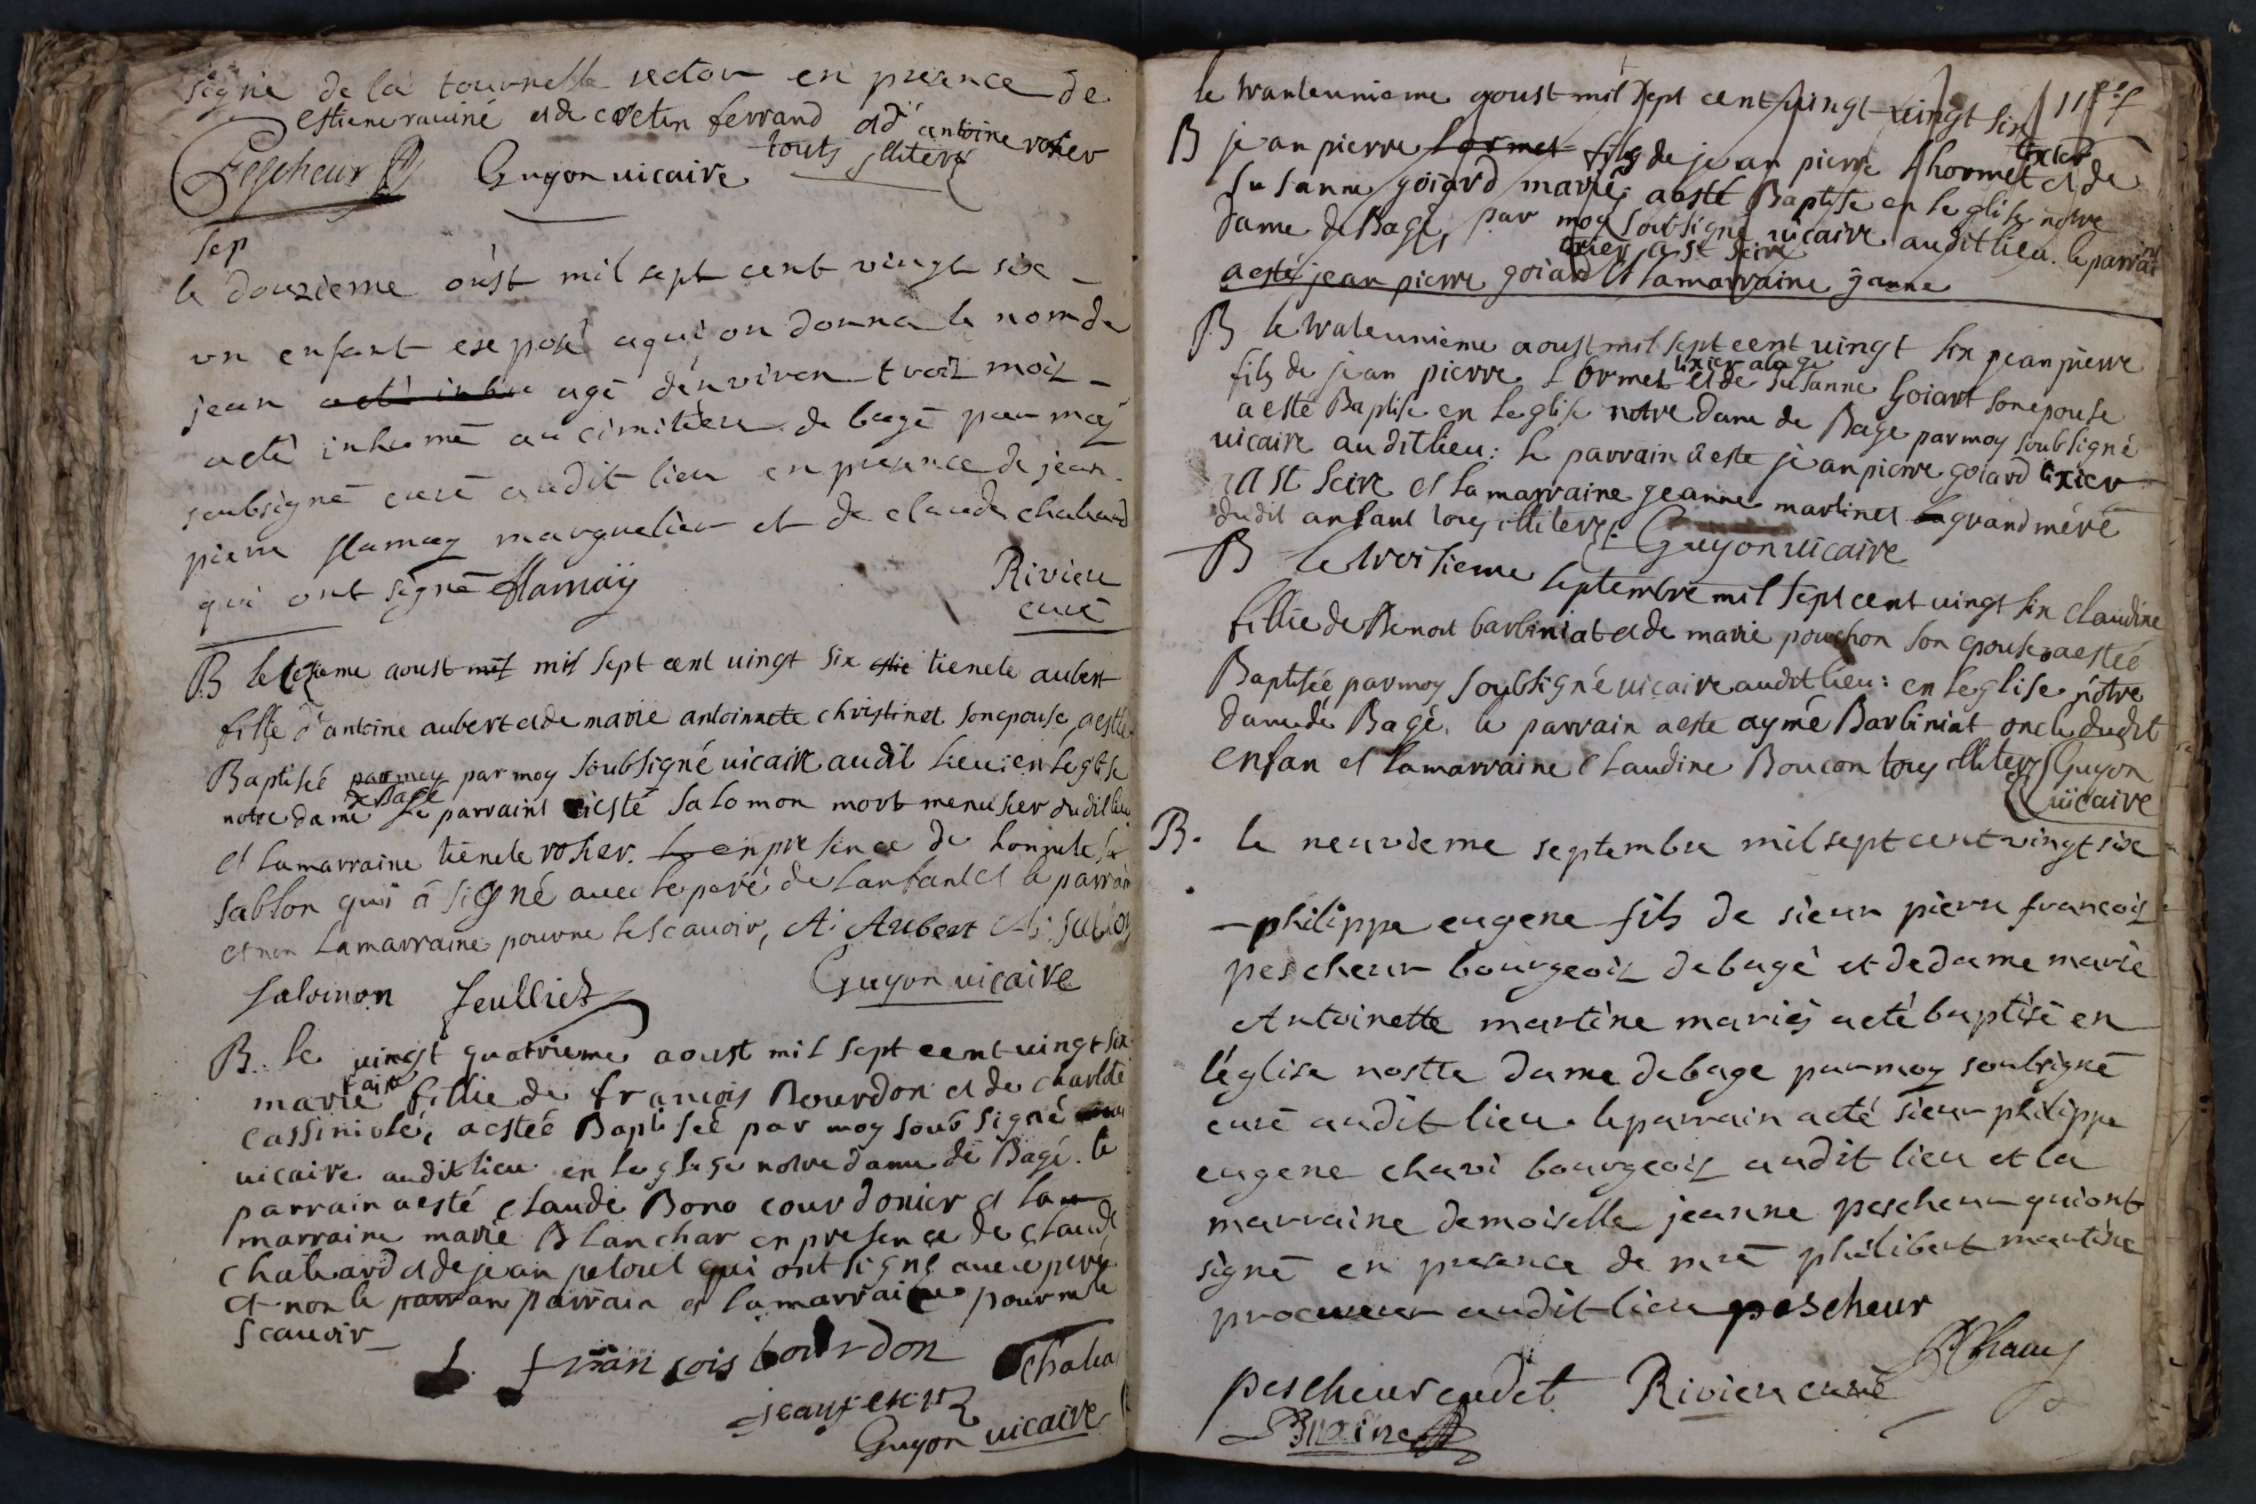 signé de la tournelle rector en presence de
estiene raviné et de cretin ferrand et d'antoine rosier
touts illiterés
Pescheur Guyon vicaire
sep
le douzieme oust mil sept cent vingt six
un enfant exposé a qui on donna le nom de
jean agé d'enviren trois mois
a eté inhumé au cimitiere de bagé par moy
soubsigné curé audit lieu en presence de jean
pierre flamay marguelier et de claude chaluard
qui ont signé flamaÿ Rivieu
curé
B le aoust mil mil sept cent vingt six tienete aubert
fille d'antoine aubert et de marie antoinnete christinet son epouse, a esté
Baptisée par moy par moy soubsigné vicaire audit lieu: en leglise
notre dame de Bagé le parraint a esté salomon mort menusier dudit lieu
et la marraine tienete rosier. en presence de honnete
sablon qui á signé avec le peré de lanfant et le parrain
et non la marraine pour ne le scavoir, A: Aubert
salomon Guyon vicaire
B. le vingt quatrieme aoust mil sept cent vingt six
marie fillie de francois Bourdon et de charlote
cassiniolé, a estéé Baptiséé par moy soub signé
vicaire audit lieu en leglise notre dame de Bagé. le
parrain a esté claude Bono courdonier et la
marraine marie Blanchar en presence de claude
chaluard et de jean petoul qui ont signé avec le peré
et non le parran parrain et la marraine pour ne le
scavoir
fran sois bourdon
Guyon vicaire
le tranteunieme aoust mil sept cent vingt vingt six
B jean pierre Lormet fils de jean pierre Lhormet tixier et de
susanne goiard mariés a esté Baptisé en leglise notre
dame de Bagé, par moy soubsigné vicaire audit lieu. le parrain
a esté jean pierre goiard et la marraine ganne
B le tranteunieme aoust mil sept cent vingt six jean pierre
fils de jean pierre Lormet tixier a bagé et de susanne goiart son epouse
a esté Baptisé en leglise notre dame de Bagé par moy soubsigné
vicaire audit lieu: le parrain a esté jean pierre goiard tixier
a st scire et la marraine jeanne martinet grand méré
dudit anfant tous illiterés: Guyon vicaire
B le troisieme septembre mil sept cent vingt six claudine
fillie de Benoit barbiniat et de marie pouchon son epouse a estéé
Baptiséé par moy soubsigné vicaire audit lieu: en leglise notre
dame de Bagé. le parrain a esté aymé Barbiniat oncle dudit
enfan et la marraine claudine Boucon tous illiterés Guyon
vicaire
B. le neuvieme septembre mil sept cent vingt six
philippe eugene fils de sieur pierre francois
pescheur bourgeois de bagé et de dame marie
Antoinette martine mariés a eté baptisé en
l'église nostre dame de bage par moy soubsigné
curé audit lieu le parrain a eté sieur philippe
eugene chavi bourgeois audit lieu et la
marraine demoiselle jeanne pescheur qui ont
signé en presence de mre philibert martine
procureur audit lieu pescheur
pescheur cadet Rivieu curé